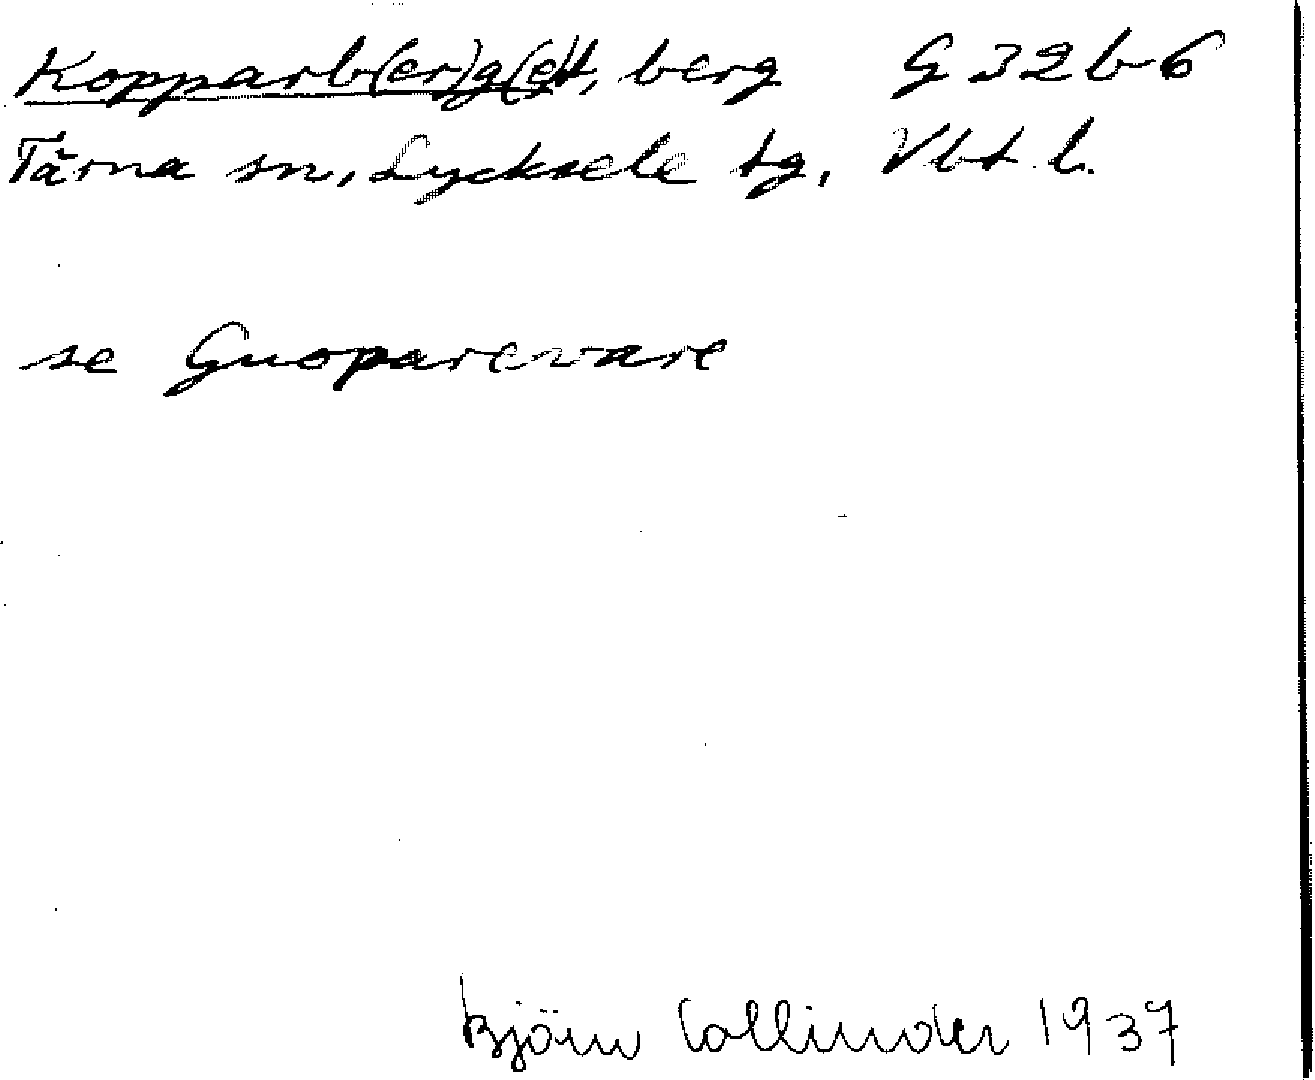 Kopparb(er)g(e)t, berg G 32 b 6
Tärna sn, Lycksele tg, Vbt. l.
se Guoparevare
Björn Collinder 1937